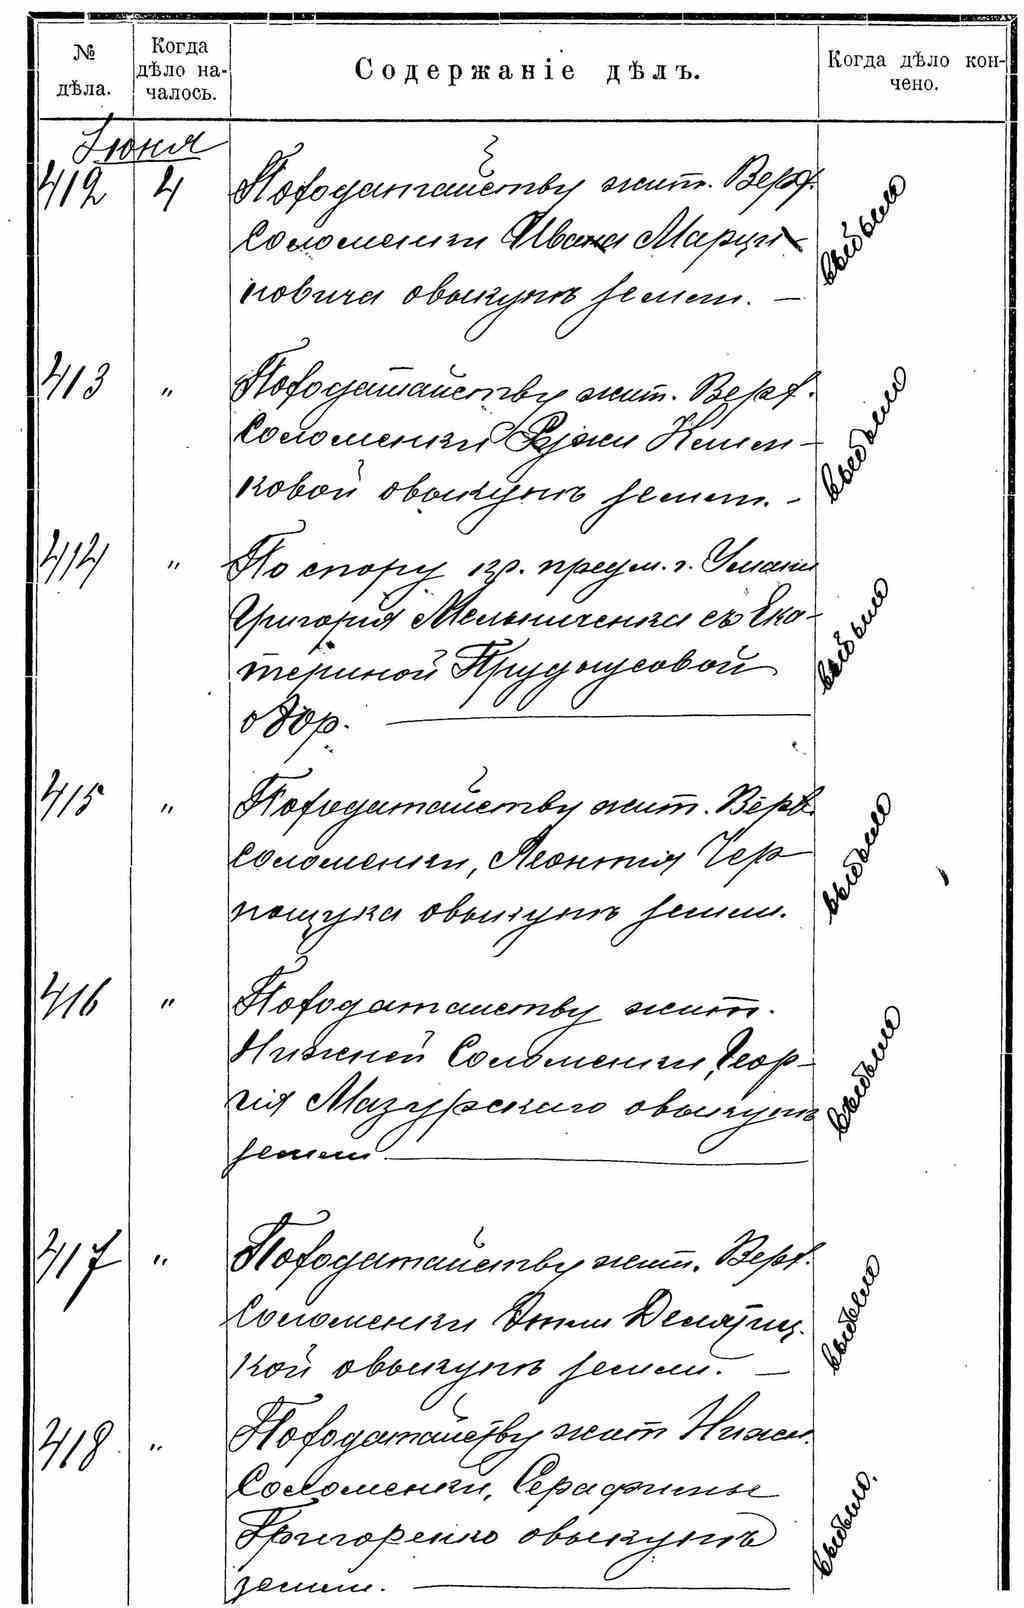 № дѣла.
Когда дѣло на-
чалось.
Содержаніе дѣлъ.
Когда дѣло кон-
чено.
Іюня
412 4 По ходатайству жит. Верх.
Соломенки Ивана Марци-
новича о выкупѣ земли. —
выбыло
413 " По ходатайству жит. Верх.
Соломенки
ковой о выкупѣ земли. -
выбыло
414 " По спору кр. предм. г. Умани
Григорія Мельниченка съ Ека-
териной Прудиусовой
о дор.
выбыло
415 " По ходатайству жит. Верх.
Соломенки, Леонтія Чер
пощука о выкупѣ земли.
выбыло
416 " По ходатайству жит.
Нижней Соломенки, Геор-
гія Мазурскаго о выкупѣ
земли
выбыло
417 " По ходатайству жит. Верх.
Соломенки
кой о выкупѣ земли. —
выбыло
418 " По ходатайству жит Нижн.
Соломенки, Серафимы
Григоренко о выкупѣ
земли.
выбыло.